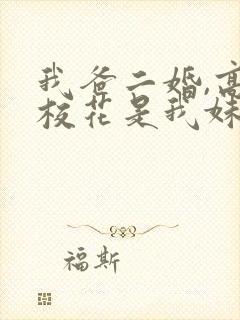 我爸二婚,高
校花是我妹
福斯